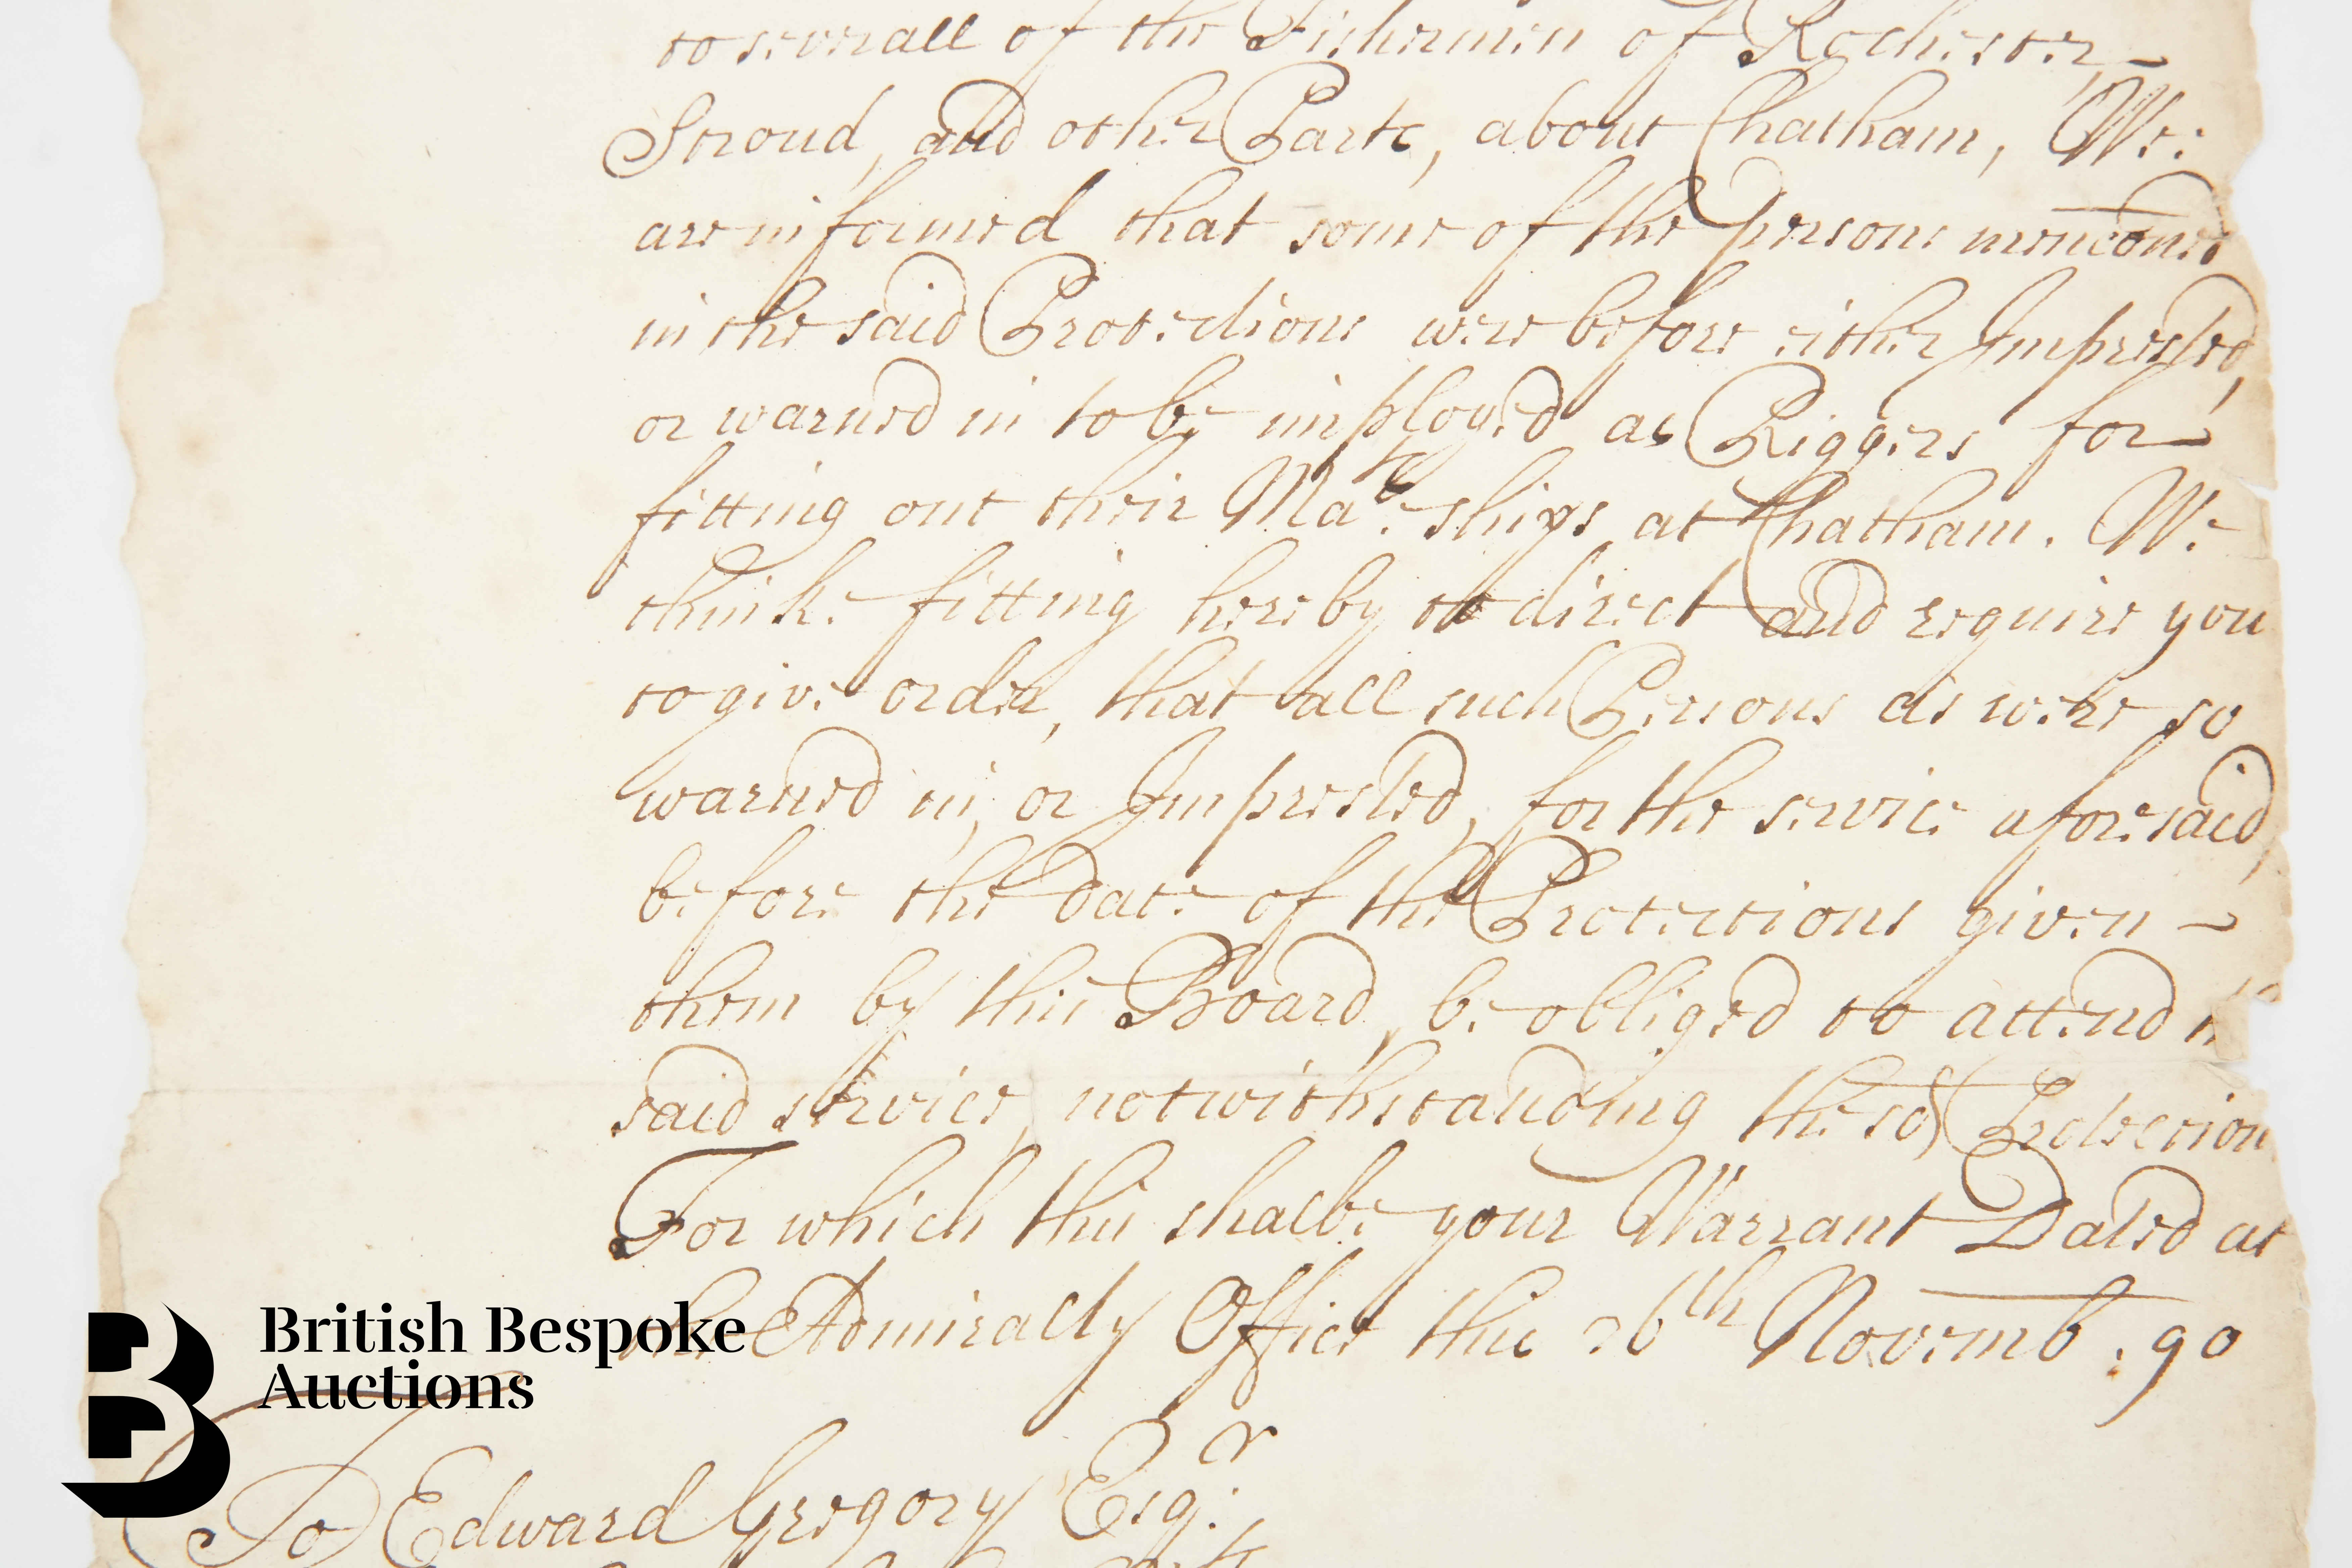 to severall of the Fishermen of Rochester,
Stroud, and other Parts, about Chatham, We
are informed that some of the persons menconed
in the said Protections were before either Imprested,
or warned in to be imployed as Riggers for
fitting out their Ma.ts ships at Chatham. We
think fitting hereby to direct and require you
to give order, that all such Persons as were so
warned in, or Imprested, for the service aforesaid,
before the date of the Protections given
them by this Board, be obliged to attend
said service, notwithstanding the sd Protection
For which this shalbe your Warrant Dated at
the Admiralty Office this 26th Novemb. 90
To Edward Gregory Esq.r
British Bespoke
Auctions